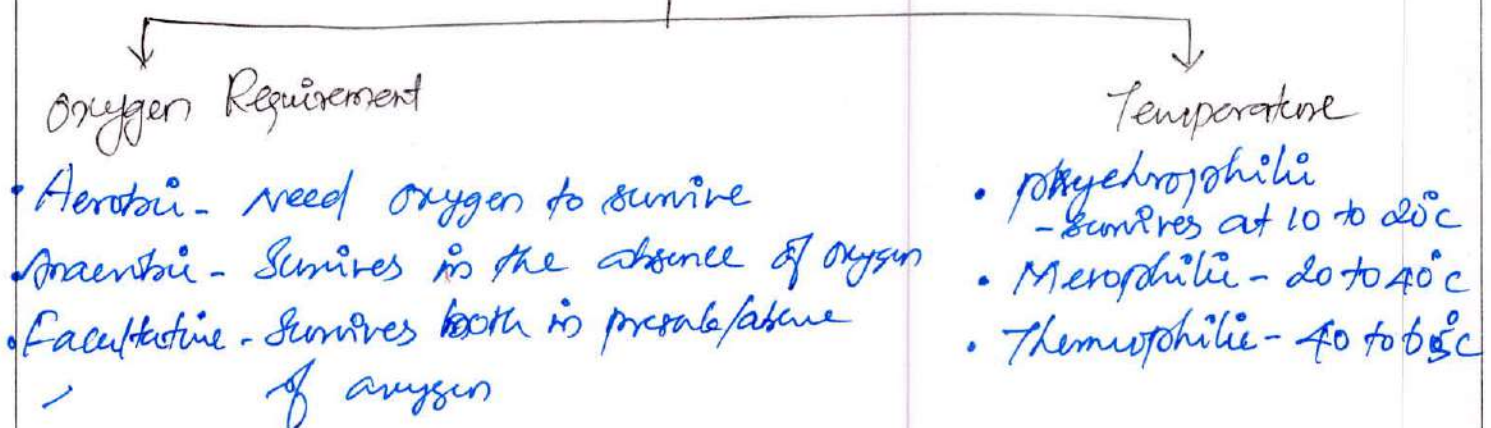 Oxygen Requirement
• Aerobic - Need oxygen to survive
• Anaerobic - Survives in the absence of oxygen
• Facultative - Survives both in presence/absence
of oxygen
Temperature
• psychrophilic
- survives at 10 to 20°c
• Mesophilic - 20 to 40°c
• Thermophilic - 40 to 65°c